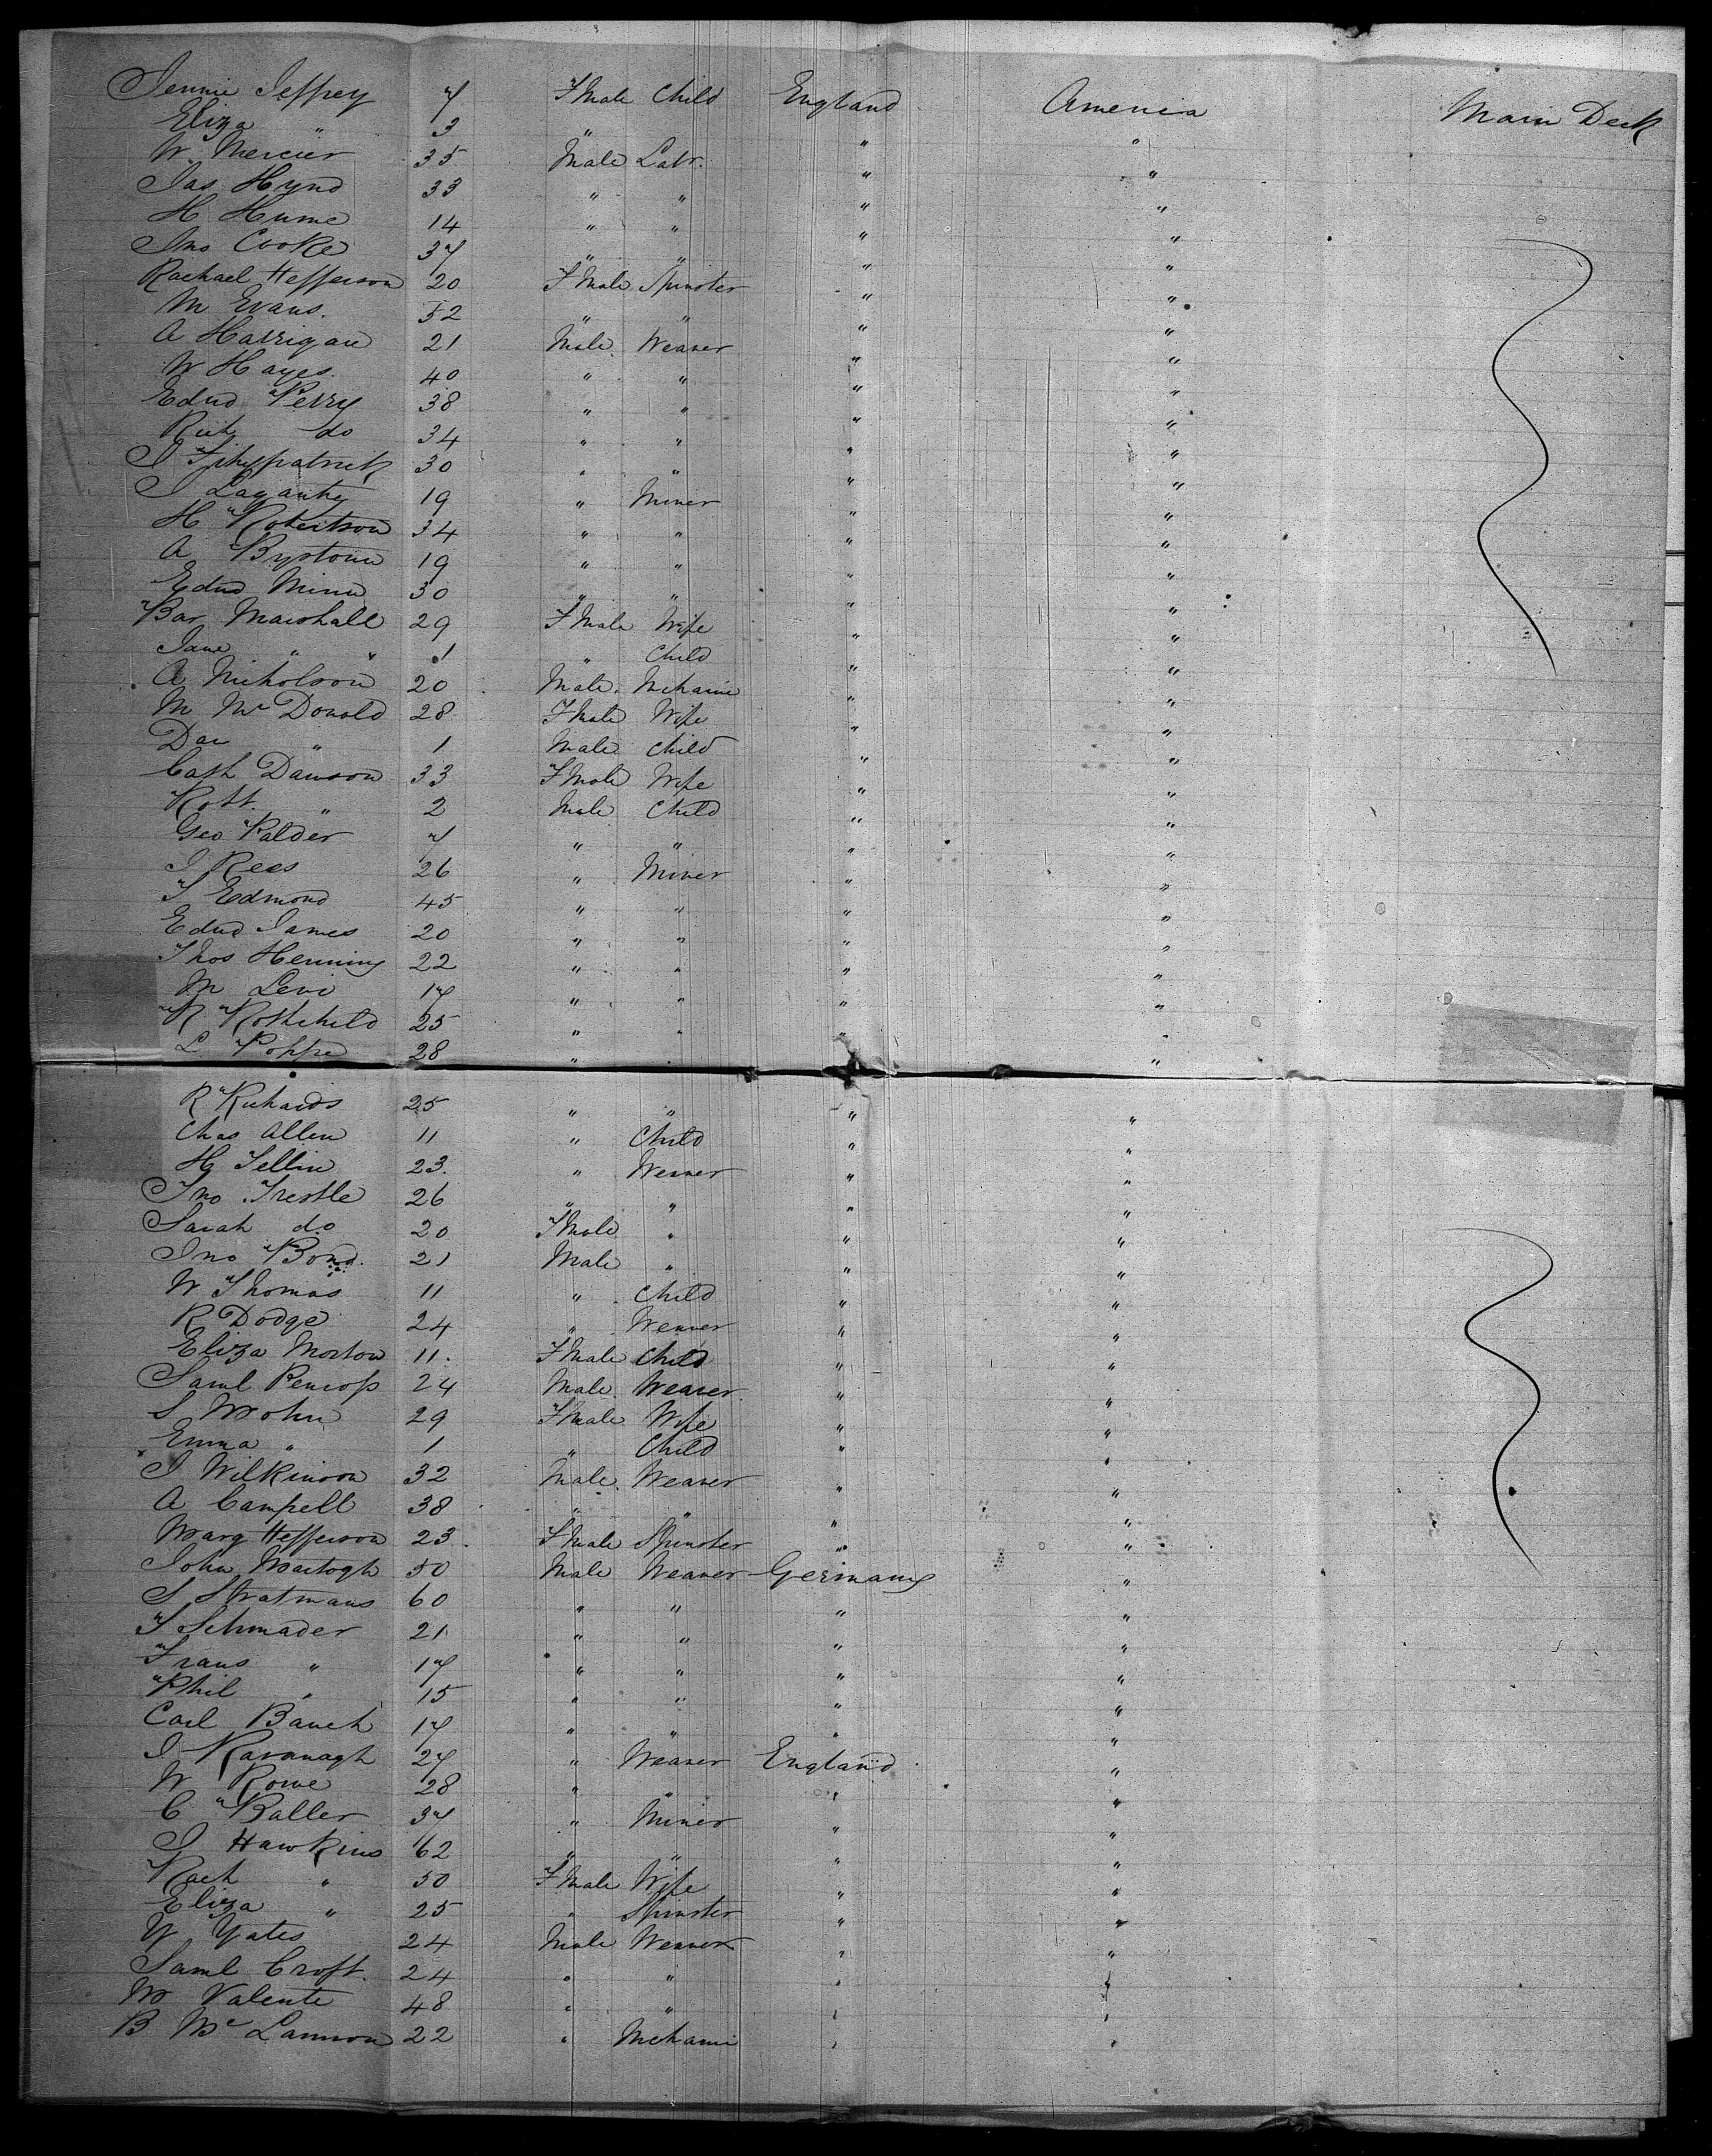 Jennie Jeffrey 7 Fmale Child England America Main Deck
Eliza " 3 " " "
W. Mercier 35 Male Labr. " "
Jas Hynd 33 " " " "
H Hume 14 " " " "
Jno Cooke 37 " " " "
Rachael Hefferson 20 Fmale Spinster " "
M Evans. 52 " " " "
A Harrigan 21 Male Weaver " "
W Hayes. 40 " " " "
Edwd Perry 38 " " " "
Rich do 34 " " " "
J Fitzpatrick 30 " " " "
J Laganty 19 " Miner " "
H Robertson 34 " " " "
A Bystown 19 " " " "
Edwd Minn 30 " " " "
Bar Marshall 29 Fmale Wife " "
Jane " 1 " Child " "
A Nicholson 20 Male Mchanic " "
M McDonald 28 Fmale Wife " "
Dan " 1 Male Child " "
Cath Dawson 33 Fmale Wife " "
Robt. " 2 Male Child " "
Geo Palder 7 " " " "
J Rees 26 " Miner " "
T Edmond 45 " " " "
Edwd James 20 " " " "
Thos Henning 22 " " " "
M Levi 17 " " " "
R Rothchild 25 " " " "
L Poppe 28 " " " "
R Richards 25 " " " "
Chas Allen 11 " Child " "
H Tellin 23. " Weaver " "
Jno Trestle 26 " " " "
Sarah do 20 Fmale " " "
Jno Bond. 21 Male " " "
W Thomas 11 " Child " "
R Dodge 24 " Weaver " "
Eliza Morton 11. Fmale Child " "
Saml Penrose 24 Male Weaver " "
S Mohn 29 Fmale Wife " "
Emma " 1 " Child " "
J Wilkinson 32 Male Weaver " "
A Campell 38 " " " "
Marg Hefferson 23. Fmale Spinster " "
John Martogh 50 Male Weaver Germany "
S Stratmans 60 " " " "
T Schmader 21 " " " "
Frans " 17 " " " "
Phil " 15 " " " "
Carl Bauch 17 " " " "
J Kavanagh 27 " Weaver England "
W Rowe 28 " " " "
C Baller 37 " Miner " "
J Hawkins 62 " " " "
Rach " 50 Fmale Wife " "
Eliza " 25 " Spinster " "
W Yates 24 Male Weaver " "
Saml Croft. 24 " " " "
M Valente 48 " " " "
B McLannon 22 " Mchanic " "